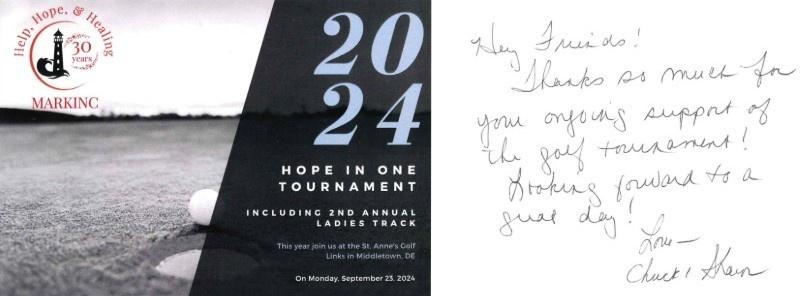 Help, Hope, & Healing
30
years
MARKINC
20
24
HOPE IN ONE
TOURNAMENT
INCLUDING 2ND ANNUAL
LADIES TRACK
This year join us at the St. Anne's Golf
Links in Middletown, DE
On Monday, September 23, 2024
Hey Friends!
Thanks so much for
your ongoing support of
the golf tournament!
Looking forward to a
great day!
Love—
Chuck &